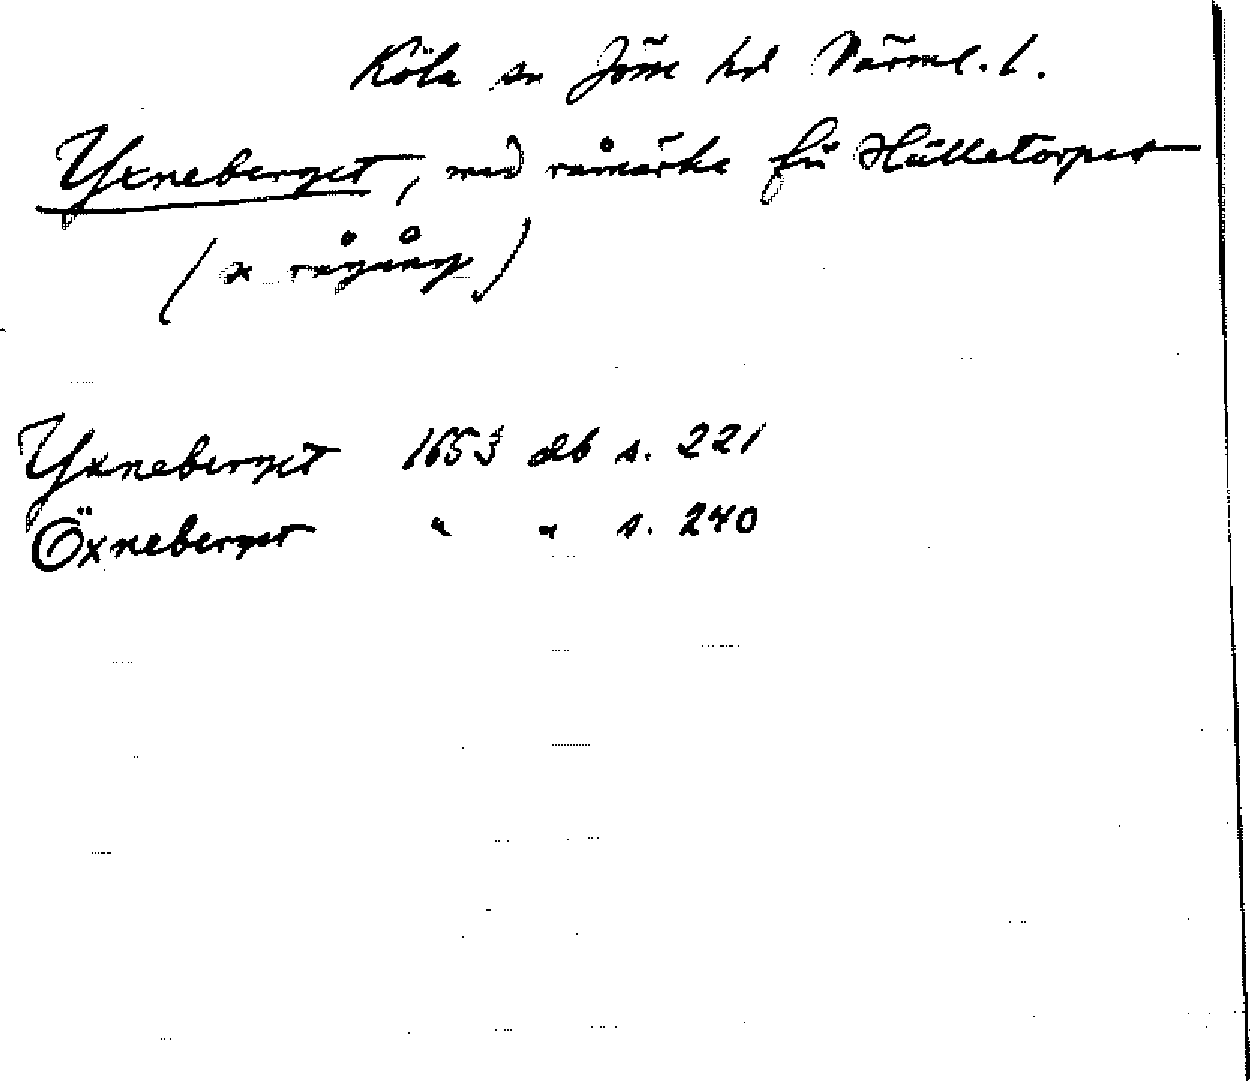 Köla sn Jösse hd Värml. l.
Yxneberget, med råmärke för Hälletorpet
(x rågång)
Yxneberget 1653 db s. 221
Öxneberget " " s. 240